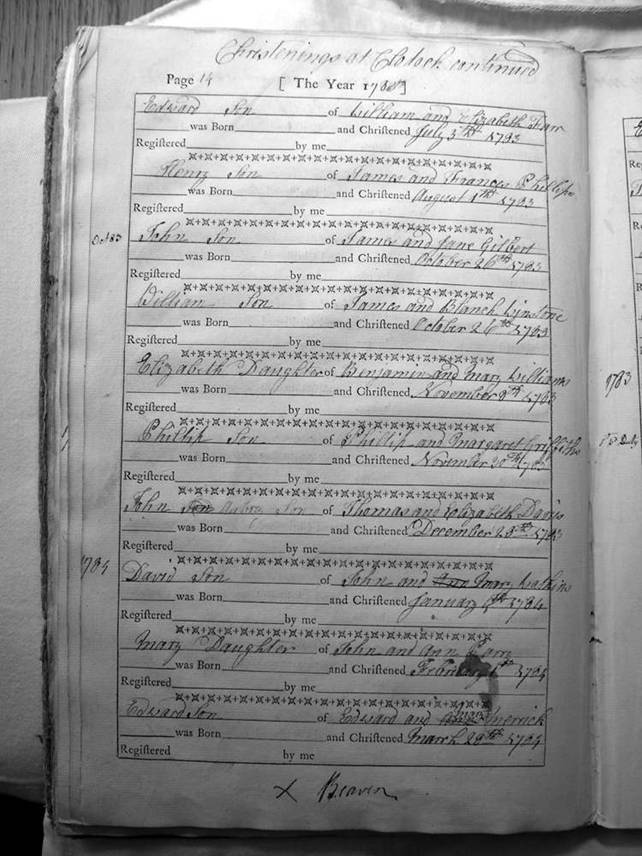 Christenings at Clodock continued
Page 14 [ The Year 178 ]
Edward Son of William and Elizabeth Farr
was Born and Chriſtened July 3th 1783
Regiſtered by me
Henry Son of James and Frances Phillips
was Born and Chriſtened August 1st 1783
Regiſtered by me
Oct 83 John Son of James and Jane Gilbert
was Born and Chriſtened October 26th 1783
Regiſtered by me
William Son of James and Blanch Winstone
was Born and Chriſtened October 26th 1783
Regiſtered by me
Elizabeth Daughter of Benjamin and Mary Williams
was Born and Chriſtened November 9th 1783
Regiſtered by me
Phillip Son of Phillip and Margaret Griffiths
was Born and Chriſtened November 20th 1783
Regiſtered by me
John Son Aubry Son of Thomas and Elizabeth Davis
was Born and Chriſtened December 23th 1783
Regiſtered by me
1784 David Son of John and Ann Mary Watkins
was Born and Chriſtened January 1784
Regiſtered by me
Mary Daughter of John and Ann Parry
was Born and Chriſtened February 1st 1784
Regiſtered by me
Edward Son of Edward and Merrick
was Born and Chriſtened March 28th 1784
Regiſtered by me
X Beaven
1783